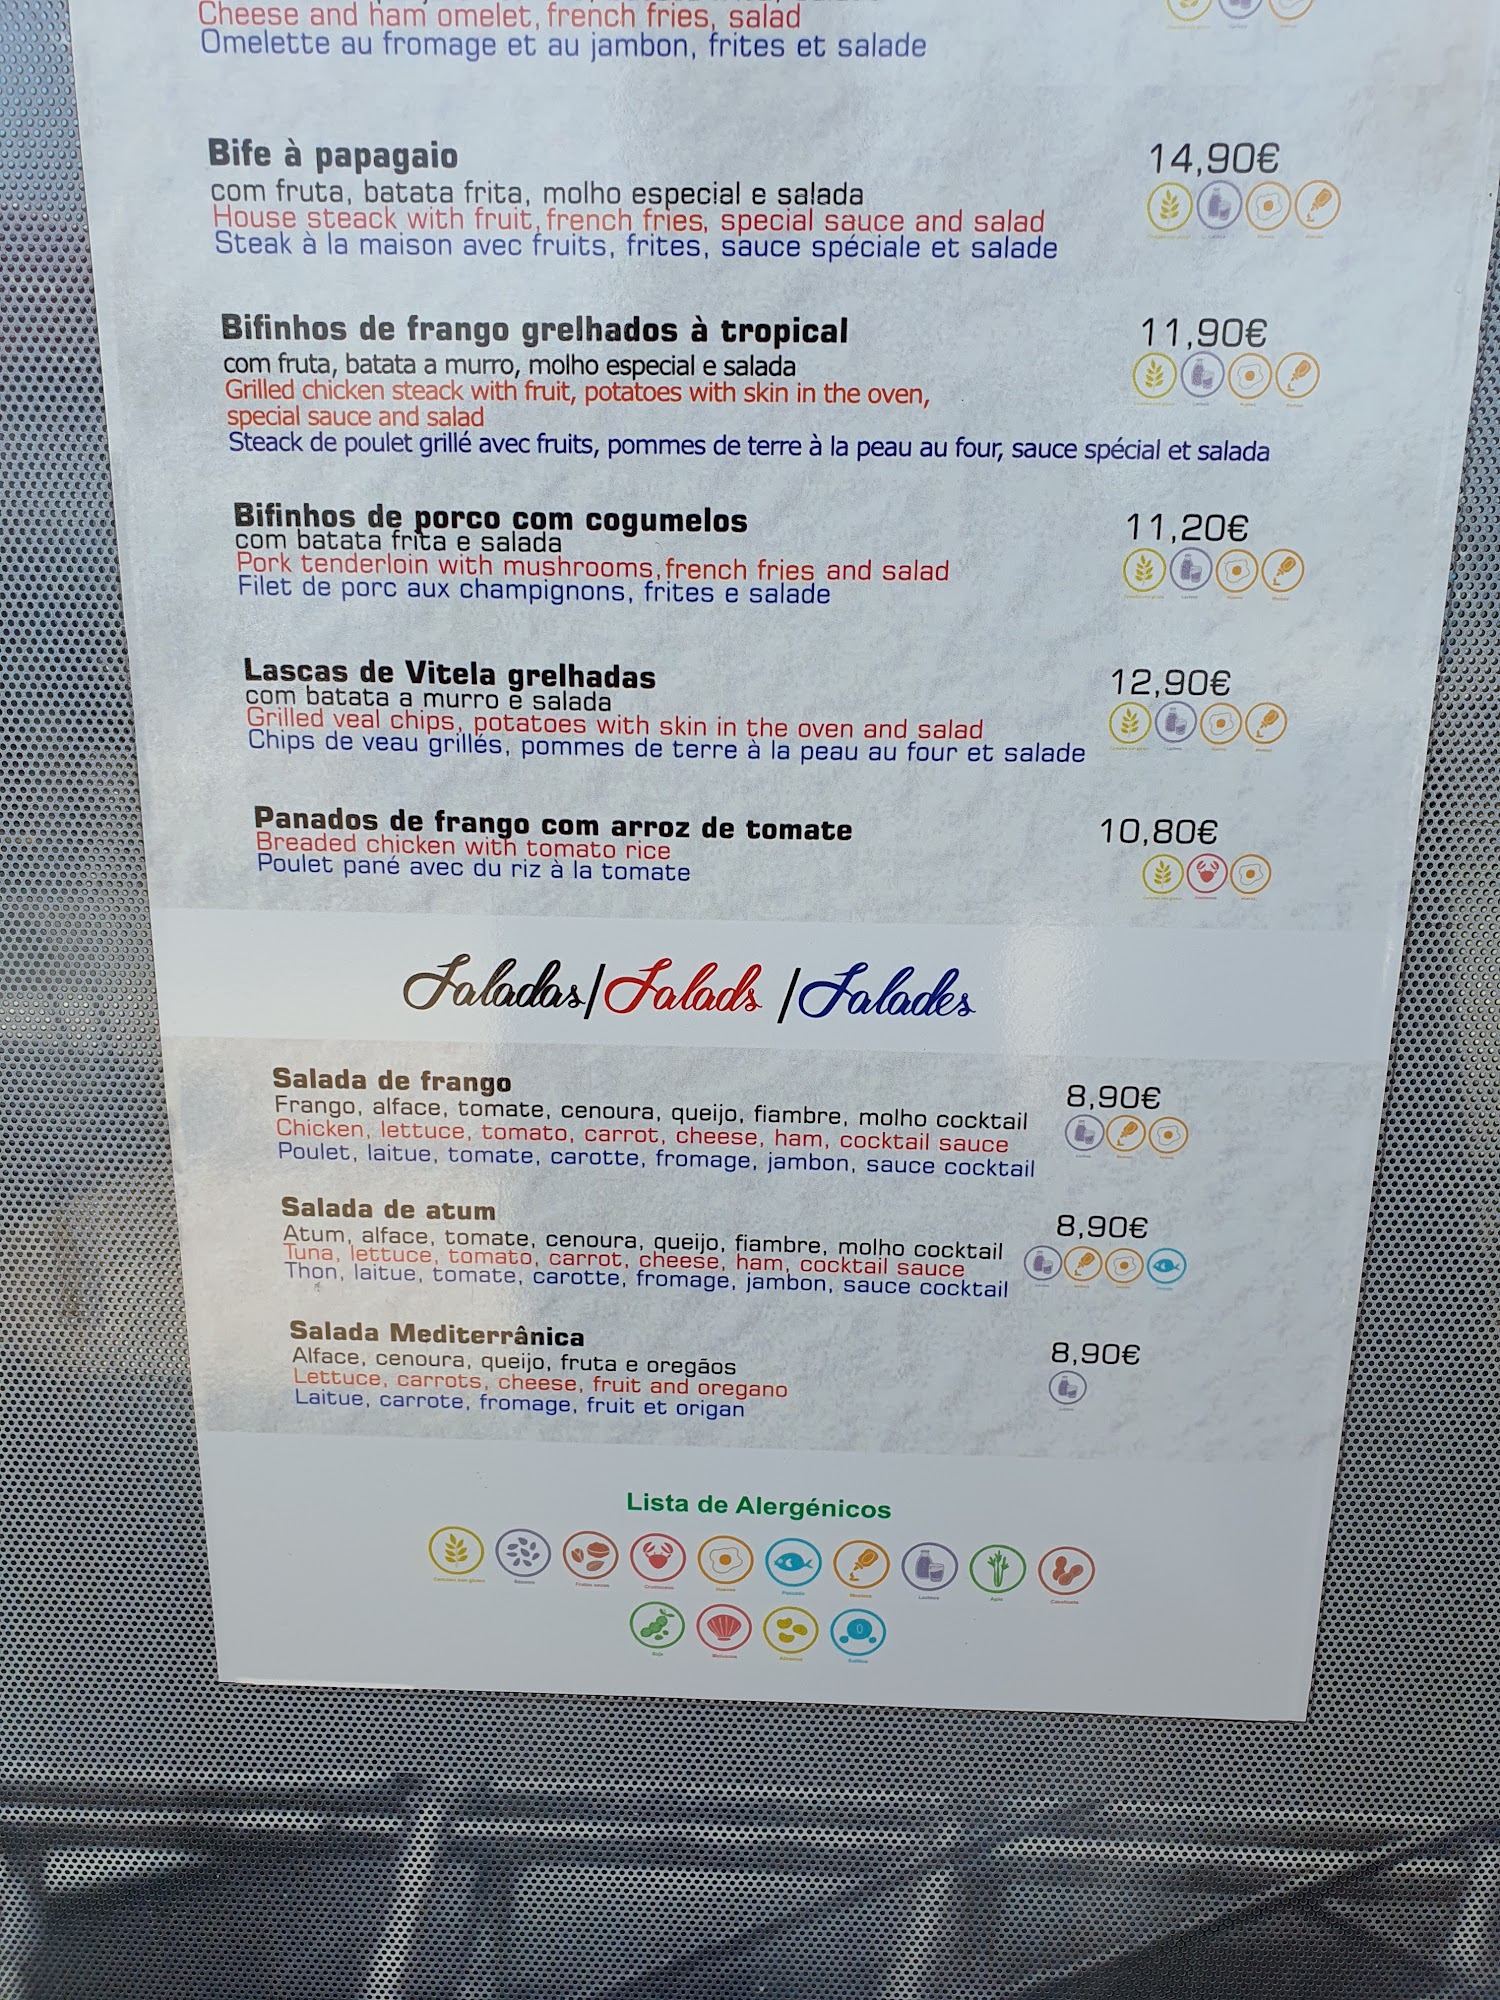 Cheese and ham omelet, french fries, salad
Omelette au fromage et au jambon, frites et salade
Bife à papagaio
14,90€
com fruta, batata frita, molho especial e salada
House steack with fruit, french fries, special sauce and salad
Steak à la maison avec fruits, frites, sauce spéciale et salade
Bifinhos de frango grelhados à tropical
11,90€
com fruta, batata a murro, molho especial e salada
Grilled chicken steack with fruit, potatoes with skin in the oven,
special sauce and salad
Steack de poulet grillé avec fruits, pommes de terre à la peau au four, sauce spécial et salada
Bifinhos de porco com cogumelos
11,20€
com batata frita e salada
Pork tenderloin with mushrooms, french fries and salad
Filet de porc aux champignons, frites e salade
Lascas de Vitela grelhadas
12,90€
com batata a murro e salada
Grilled veal chips, potatoes with skin in the oven and salad
Chips de veau grillés, pommes de terre à la peau au four et salade
Panados de frango com arroz de tomate
10,80€
Breaded chicken with tomato rice
Poulet pané avec du riz à la tomate
Saladas/Salads/Salades
Salada de frango
8,90€
Frango, alface, tomate, cenoura, queijo, fiambre, molho cocktail
Chicken, lettuce, tomato, carrot, cheese, ham, cocktail sauce
Poulet, laitue, tomate, carotte, fromage, jambon, sauce cocktail
Salada de atum
8,90€
Atum, alface, tomate, cenoura, queijo, fiambre, molho cocktail
Tuna, lettuce, tomato, carrot, cheese, ham, cocktail sauce
Thon, laitue, tomate, carotte, fromage, jambon, sauce cocktail
Salada Mediterrânica
8,90€
Alface, cenoura, queijo, fruta e oregãos
Lettuce, carrots, cheese, fruit and oregano
Laitue, carrote, fromage, fruit et origan
Lista de Alergénicos